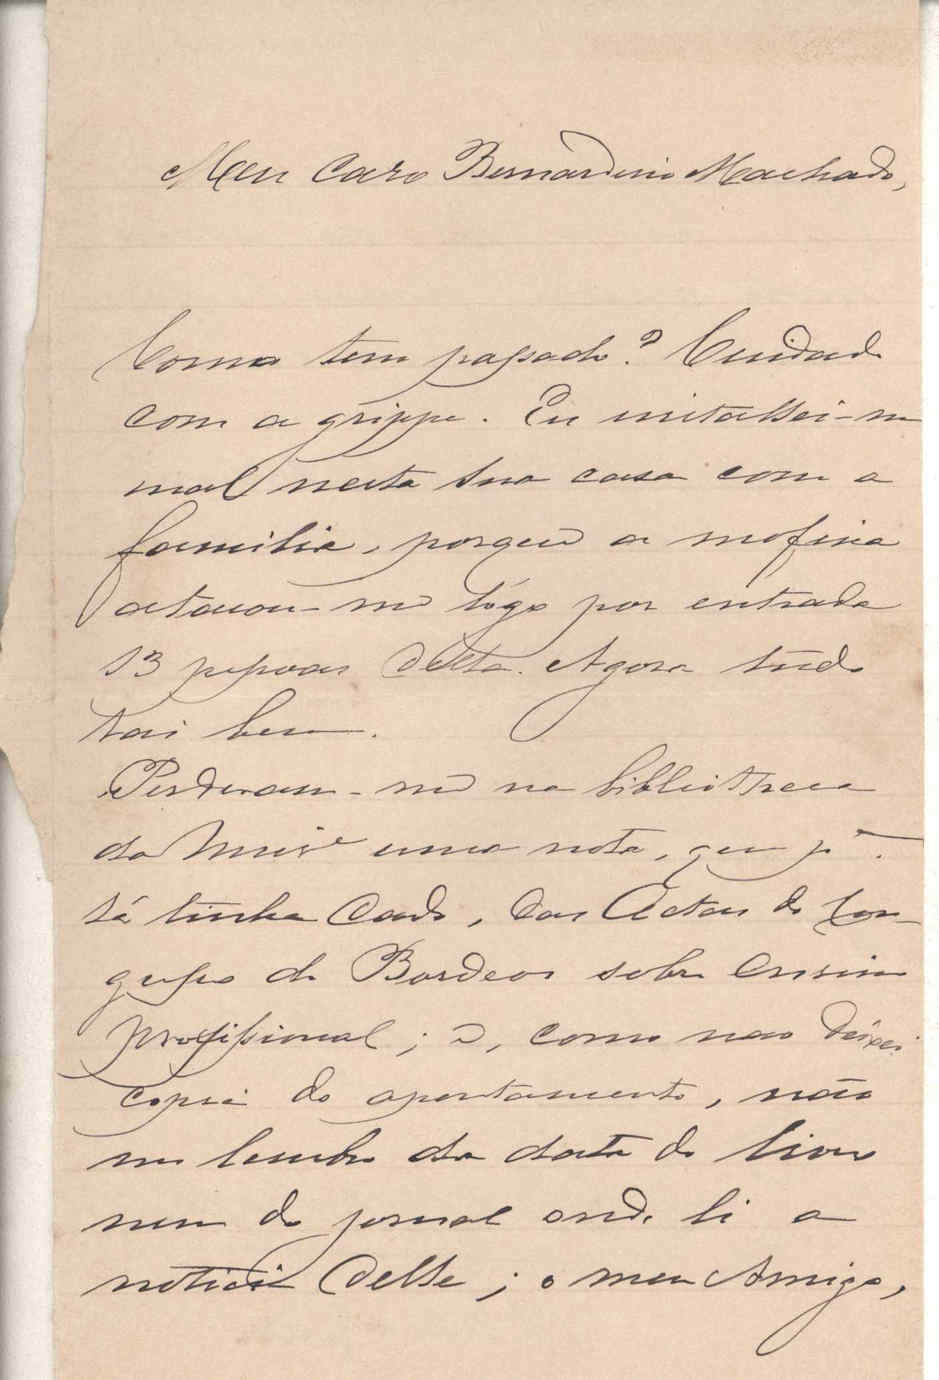 Meu Caro Bernardino Machado,
Como tem passado? Cuidado
com a grippe. Eu installei-me
mal nesta sua casa com a
familia, porque a mofina
atacou-me lógo por entrada
13 pessoas della. Agora tudo
vai bem.
Perderam-me na bibliotheca
do uma nota, que já
lá tinha dado, das Actas do Con-
gresso de Bordeos sobre Ensino
profissional; e, como não deixei
copia do apontamento, não
me lembro da data do livro
nem do jornal onde li a
noticia delle; o meu Amigo,